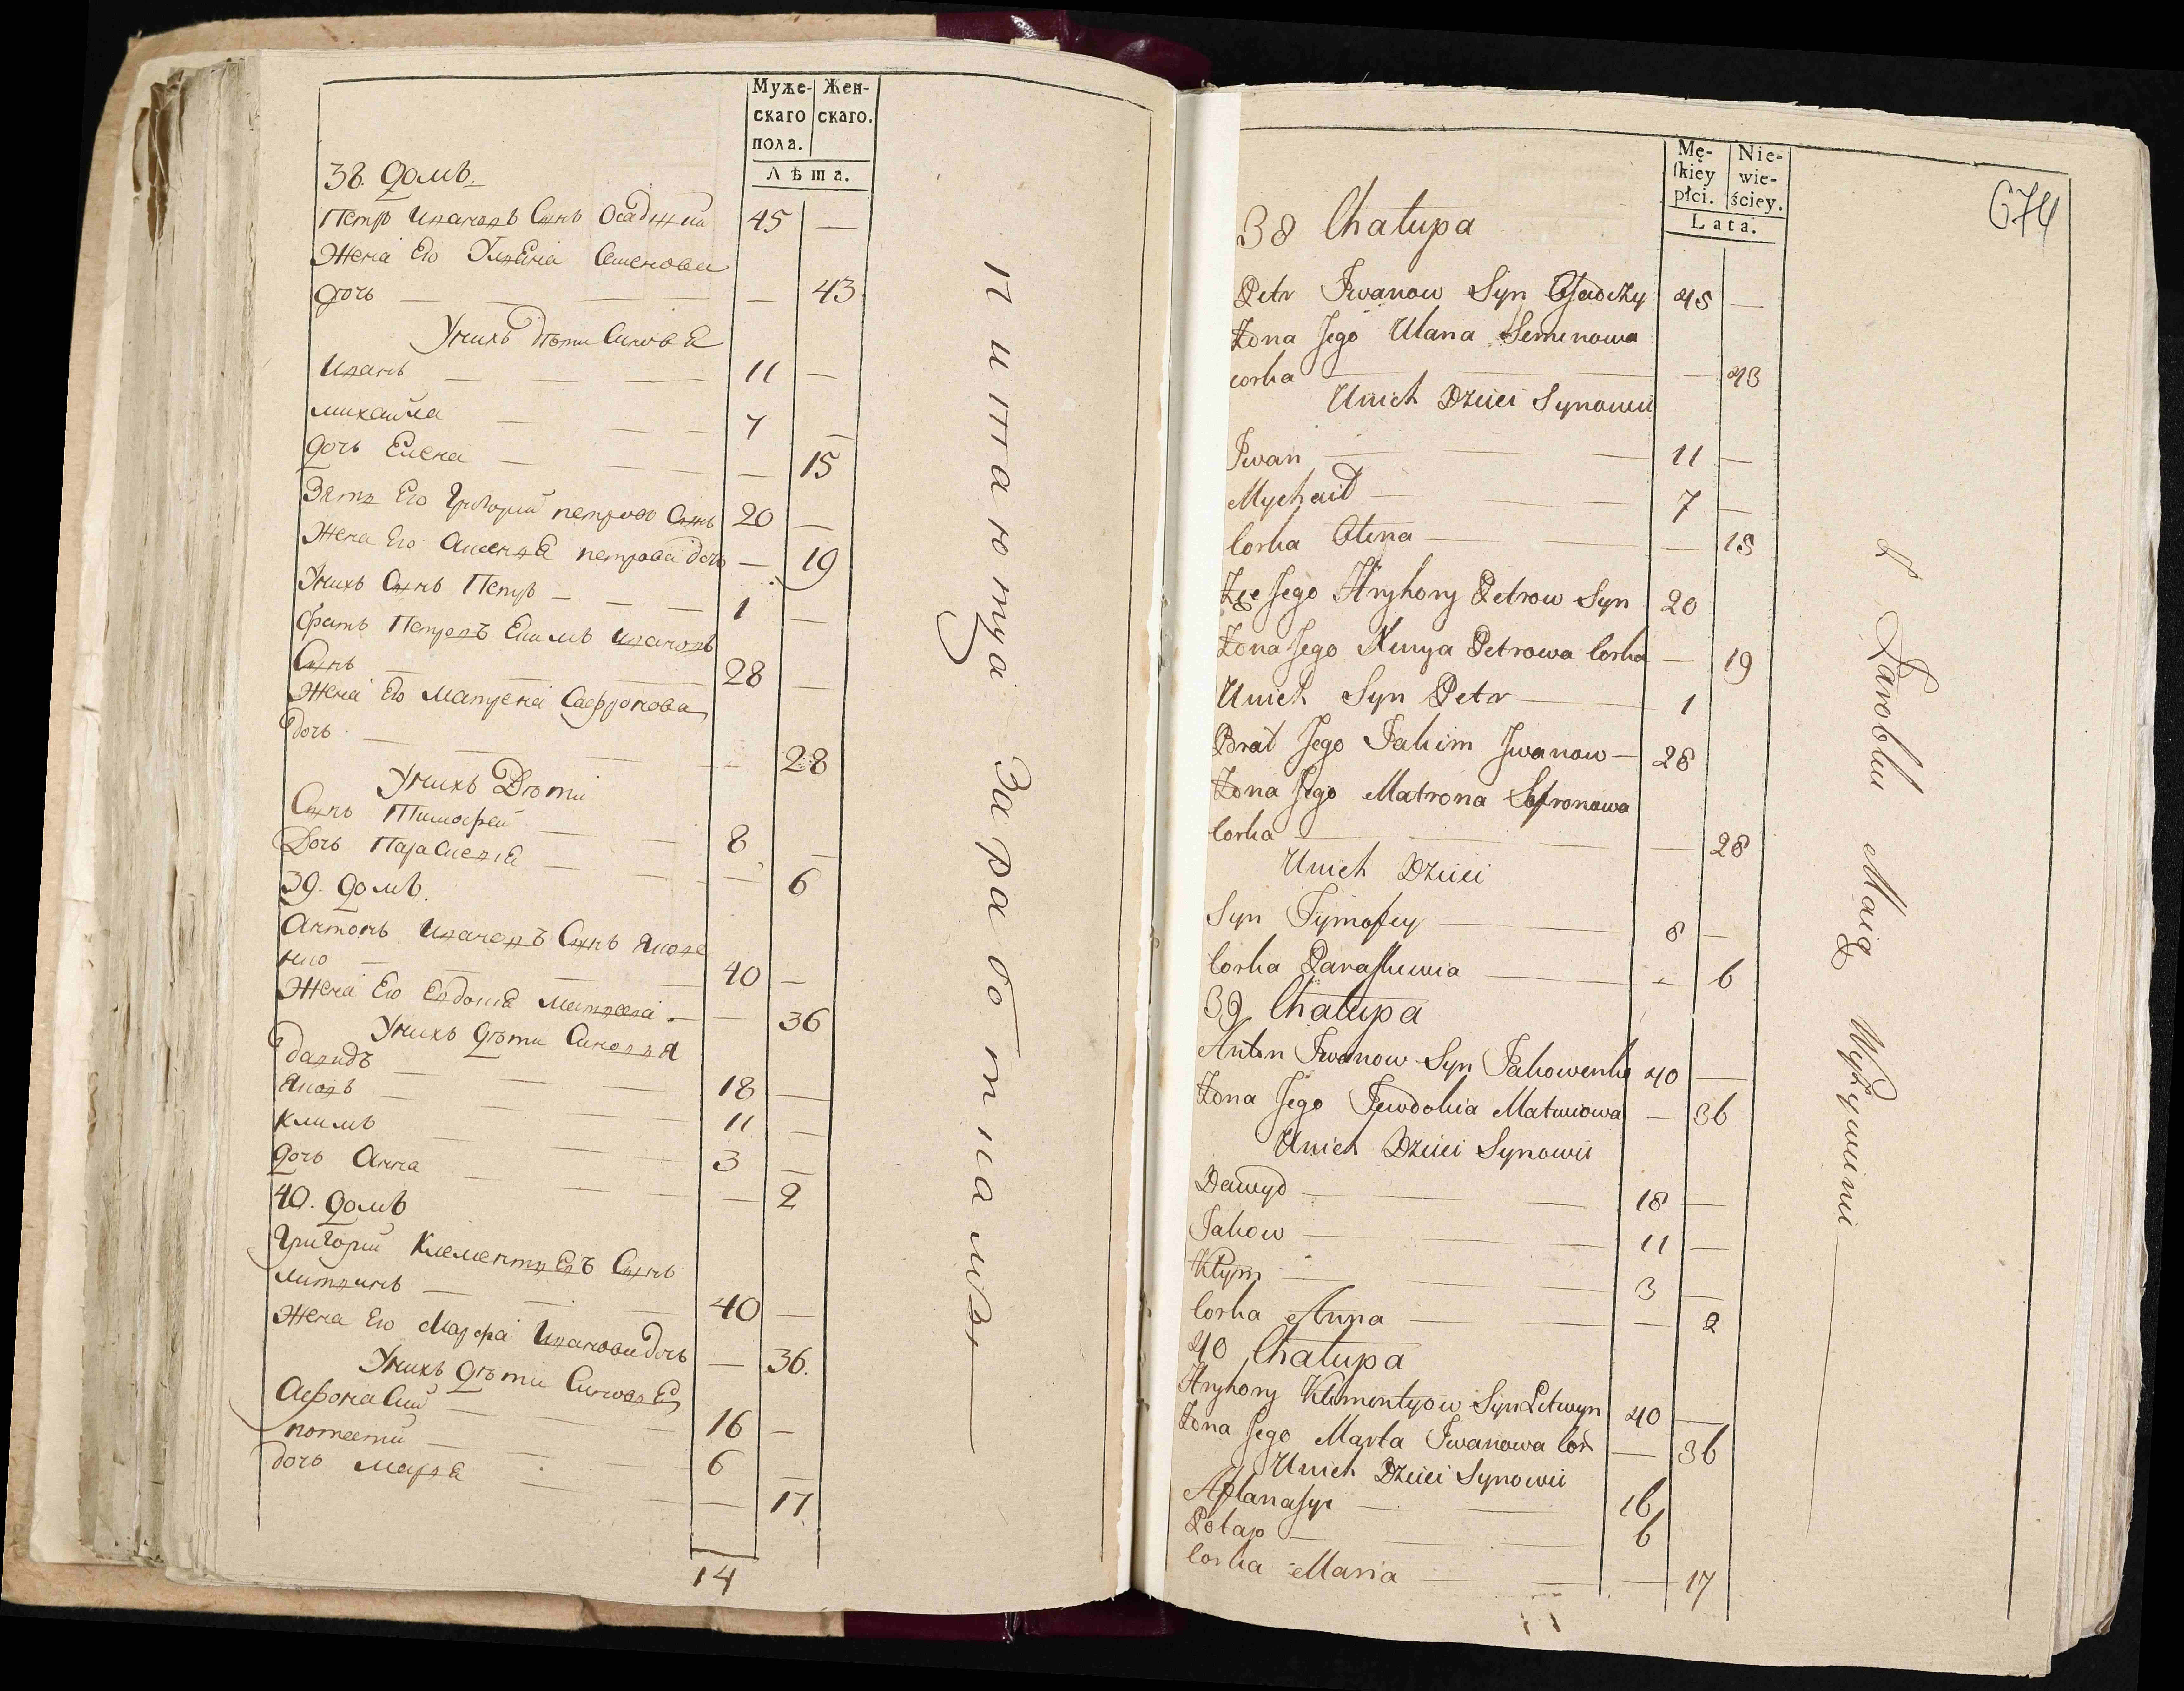 Муже-
скаго
пола.
Жен-
скаго.
Лѣта.
38. Домъ.
Петръ Ивановъ Сынъ Осадчий 45 —
Жена Его Ульяна Семенова
Дочь — — — — 43
У нихъ Дѣти Синовья
Иванъ — — — 11 —
Михаила — — — 7 —
Дочь Елена — — — — 15
Зять Его Григорий петровъ Сынъ 20 —
Жена Его петрова дочь — 19
У нихъ Сынъ Петръ — — — 1 —
братъ Петровъ Екимъ Ивановъ
Сынъ — — — 28 —
Жена Его Матрена Сафронова
дочь — — — 28
У нихъ Дѣти
Сынъ Тимофей — — 8 —
Дочь Параскевия — — — 6
39. Домъ.
Антонъ Ивановъ Сынъ Яковѣ
нко — — — 40 —
Жена Его Евдокия — — 36
У нихъ Дѣти Синовья
давидъ — — — 18 —
Яковъ — — — 11 —
Климъ — — — 3 —
Дочь Анна — — — — 2
40. Домъ
Григорий Клементьевъ Сынъ
литвинъ — — — 40 —
Жена Его Марфа Иванова дочь — 36.
У нихъ Дѣти Синовья
Афонасий — — — 16 —
— — — 6 —
дочь Марья — — — 17
14
питаютца Заработками —
Mę-
skiey
płci.
Nie-
wie-
ściey.
Lata.
674
38 Chatupa
Petr Iwanow Syn Osadczy 45 —
Żona Jego Ulana Semenowa
corka — — — 43
Unich Dzieci Synowie
Iwan — — — 11 —
Mychaił — — — 7 —
Corka Olena — — — 15
Zięc Jego Hryhory Petrow Syn 20
Żona Jego Xenya Petrowa Corka — 19
Unich Syn Petr — — 1
Brat Jego Jakim Iwanow — 28
Żona Jego Matrona Sofronowa
Corka — — — 28
Unich Dzieci
Syn Tymofey — — 8 —
Corka Paraskewia — — — 6
39 Chatupa
Anton Iwanow Syn Jakowenko 40 —
Żona Jego Jewdokia Matwiowa — 36
Unich Dzieci Synowie
Dawyd — — — 18 —
Jakow — — — 11 —
Kłym — — — 3 —
Corka Anna — — — 2
40 Chatupa
Hryhory Klementyow Syn Letwyn 40 —
Żona Jego Marta Iwanowa Cor — 36
Unich Dzieci Synowie
Aftanasyi — — 16
Potap — — 6
Corka Maria — — — 17
z Zarobku Maią Wyżywinie —